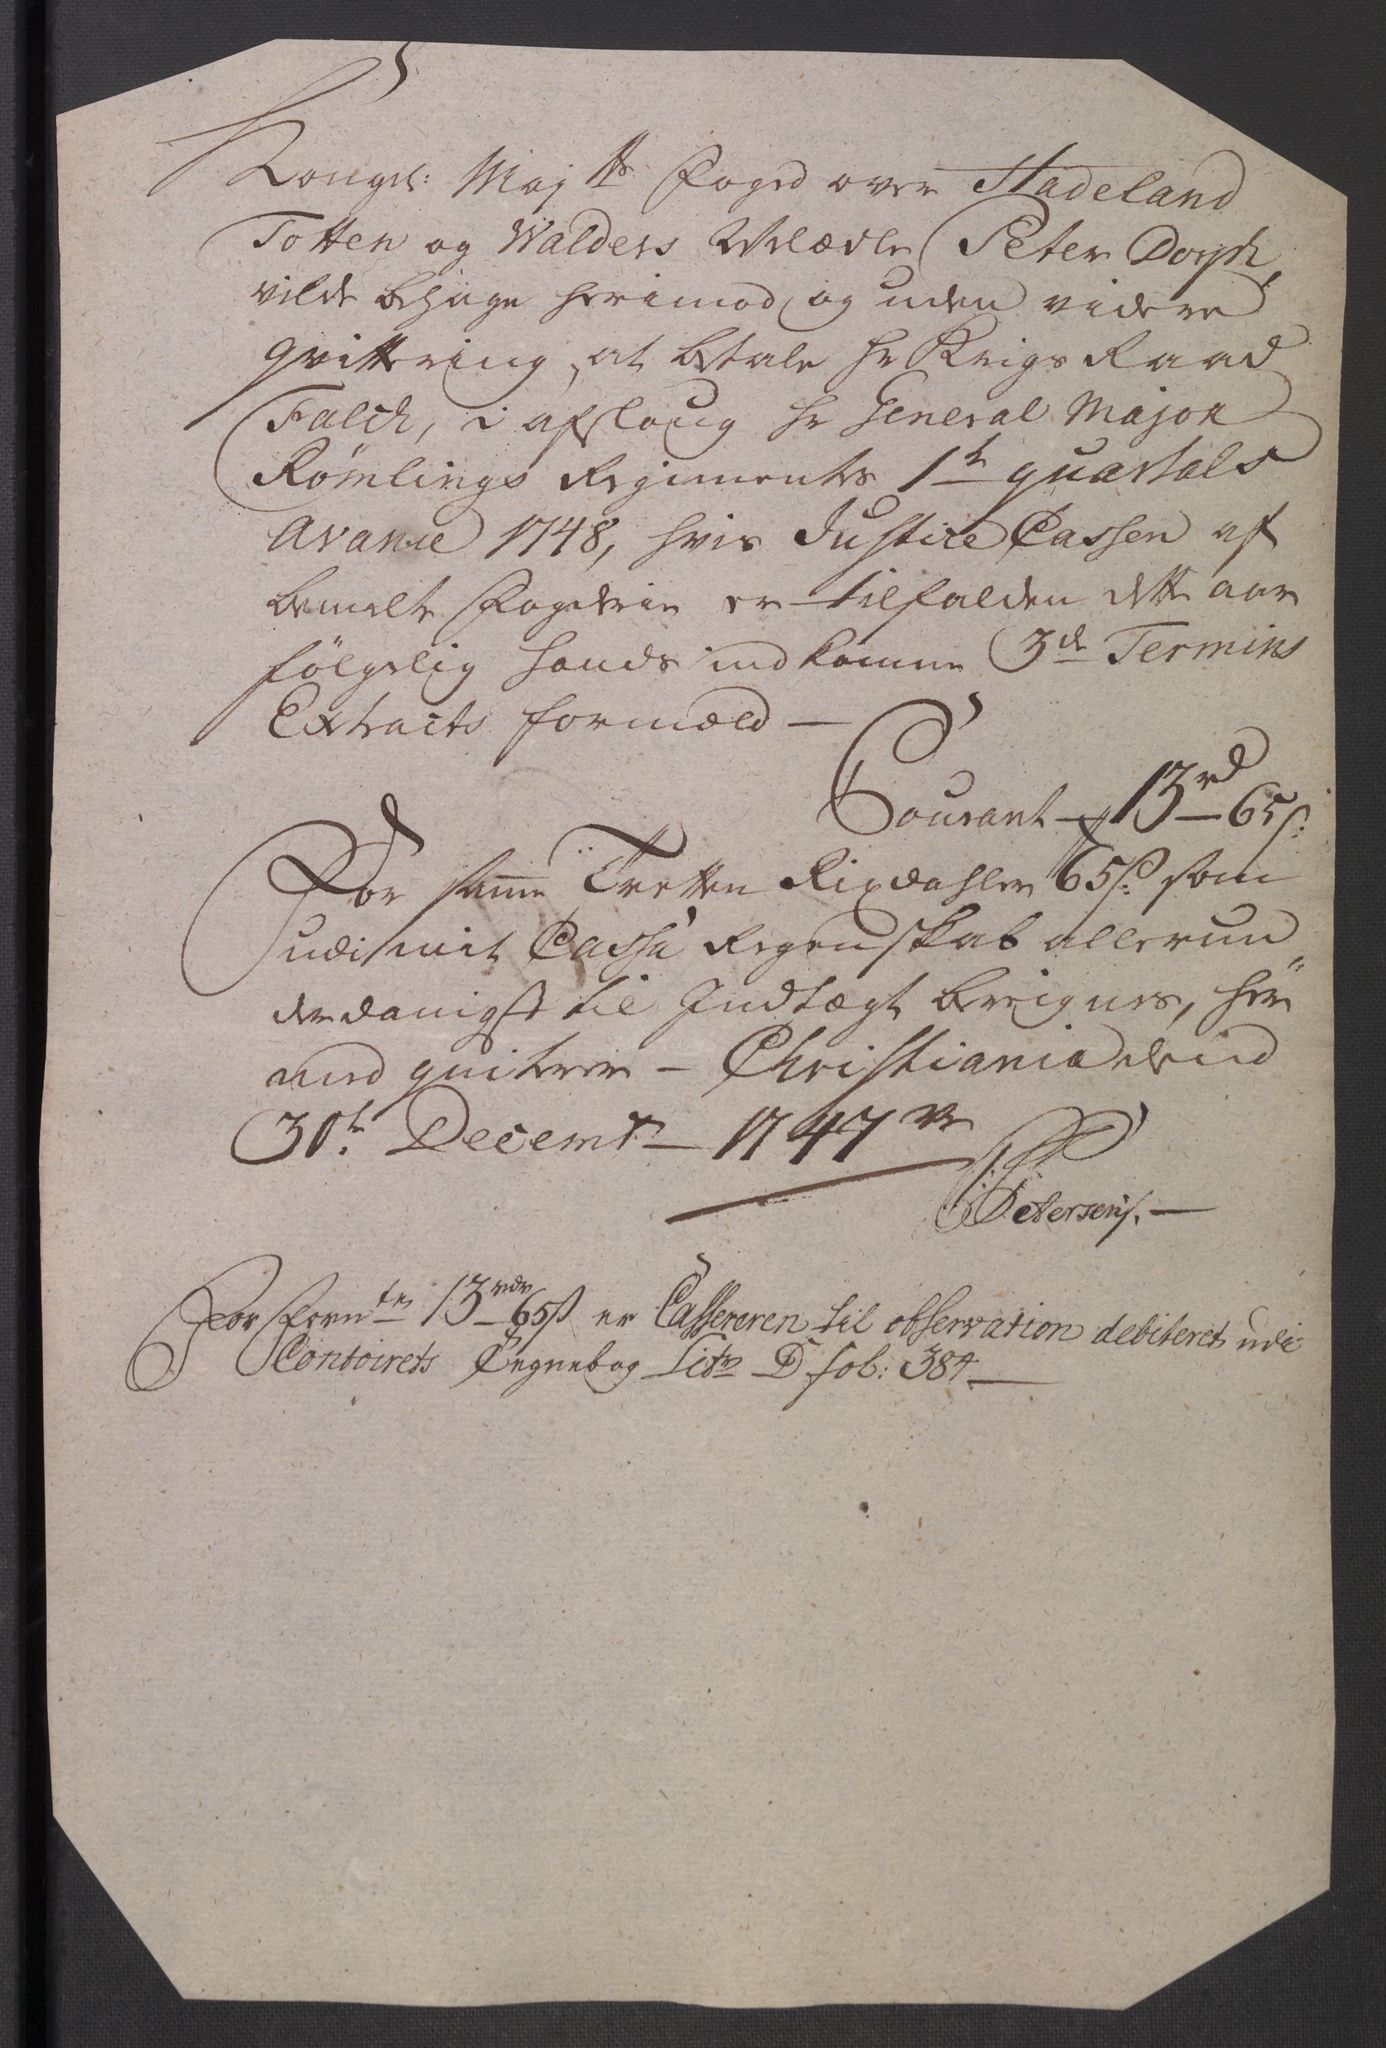 Kongel: Maj^ts Foged over Hadeland
Totten og Walders Velædle Peter Dorph,
vilde behage herimod, og uden videre
qvittering, at betale hr Krigs Raad
Falch, i afslaug hr General Major
Römlings Regiments 1^te quartals
Avance 1748, hvis Justice Cassen af
bemelte Fogderie er tilfalden dette aar
følgelig hands indkomne 3^de Termins
Extracts formæld —
Courant — 13^rd — 65 s:
For samme Tretten Rixdahler 65 s: som
udi mit Cassa Regenskab allerun„
derdanigst til Indtægt bereignes, her
med quiterer — Christiania dend
30^te Decemb^r 1747^ve
Petersen. —
For forn^te 13^rdr 65 s er Cassereren til observation debiteret udi
Contoirets Tegnebog Lit^r D fol: 384 —